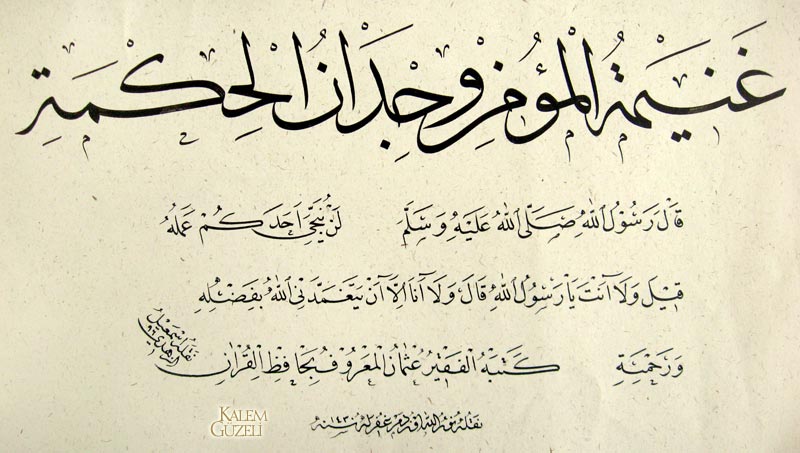 غَنِيمَةُ الْمُؤْمِنِ وِجْدَانُ الْحِكْمَةِ
قَالَ رَسُولُ اللهِ صَلَّى اللهُ عَلَيْهِ وَسَلَّمَ لَنْ يُنَجِّيَ اَحَدَكُمْ عَمَلُهُ
قِيلَ وَلَا اَنْتَ يَا رَسُولَ اللهِ قَالَ وَلَا اَنَا اِلَّا اَنْ يَتَغَمَّدَنِىَ اللهُ بِفَضْلِهِ
وَرَحْمَتِهِ كَتَبَهُ الْفَقِيرُ عُثْمَانُ الْمَعْرُوفُ بِحَافِظِ الْقُرْآنِ
نقله اسمعيل الزهدي
نقله نور الله اوزدم غفر له سنه ١٤٣٠
KALEM
GÜZELİ